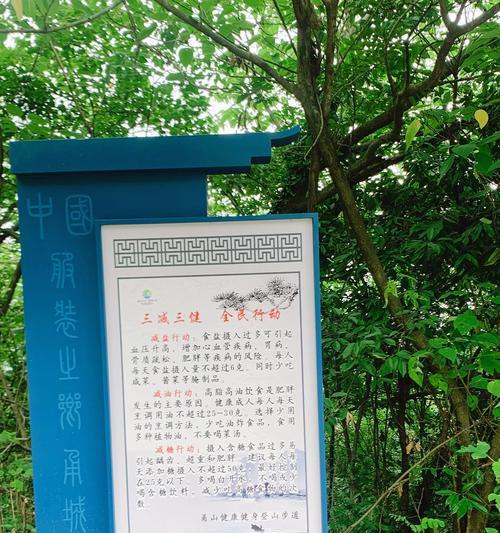 中國
服
装
之
甬
城
三减三健 全民行动
减盐行动：食盐摄入过多可引起
血压升高，增加心血管疾病、胃病、
骨质疏松、肥胖等疾病的风险。每人
每天食盐摄入量不超过6克。同时少吃
咸菜、酱菜等腌制品。
减油行动：高脂高油饮食是肥胖
发生的主要原因。健康成人每人每天
烹调用油不超过25-30克。选择少用
油的烹调方法，少吃油炸食品，食用
多种植物油，不要喝菜汤。
减糖行动：摄入含糖食品过多易
引起龋齿、超重和肥胖。建议每人每
天添加糖摄入不超过50克，最好控制
在25克以下。多喝白开水，不喝或少
喝含糖饮料。减少吃高糖食物的次
数。
山健康健身登山步道